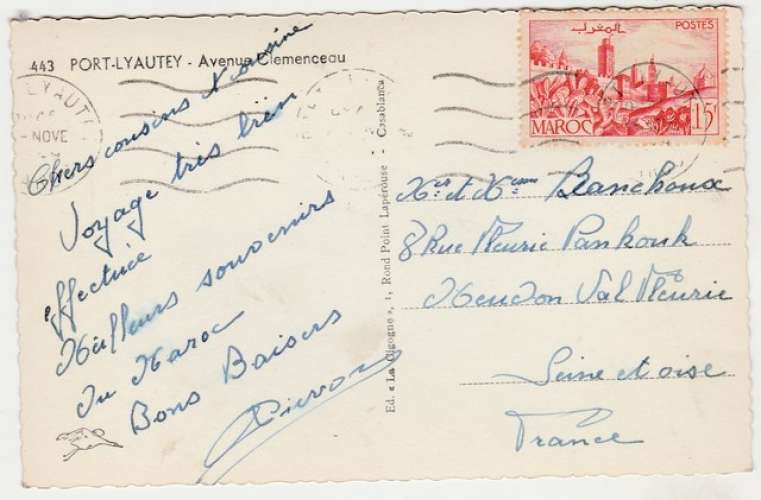 443 PORT-LYAUTEY - Avenue Clemenceau
LYAUT
NOVE
Chers cousins & cousine
Voyage très bien
effectuée
Meilleurs souvenirs
du Maroc
Bons Baisers
Ed. « La Cigogne », 1, Rond Point Lapérouse - Casablanca
المغرب
POSTES
MAROC
15F
Mr et Mme Banchoux
8 Rue Fleurie Pankouk
Meudon Val Fleurie
Seine et oise
France